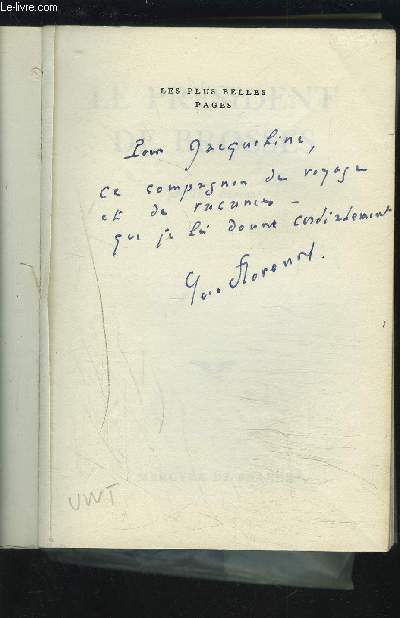 www.Le-livre.com
LES PLUS BELLES
PAGES
LE PRÉSIDENT
DE BROSSES
Pour Jacqueline,
ce compagnon de voyage
et de vacances –
que je lui donne cordialement
Yves Florenne.
MERCURE DE FRANCE
UWT